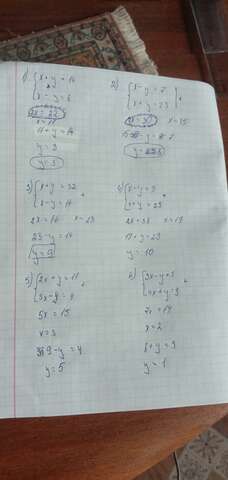 1) { x + y = 14
x - y = 8
2x = 22
x = 11
11 + y = 14
y = 3
y = 3
2) { x - y = 7
x + y = 23
x = 15
3) { x + y = 32
x - y = 14
2x = 46 x = 23
23 - y = 14
y = 9
4) { x - y = 9
x + y = 29
x = 19
19 + y = 29
y = 10
5) { 2x + y = 11
3x - y = 4
5x = 15
x = 3
9 - y = 4
y = 5
6) { 3x - y = 5
4x + y = 9
7x = 14
x = 2
8 + y = 9
y = 1